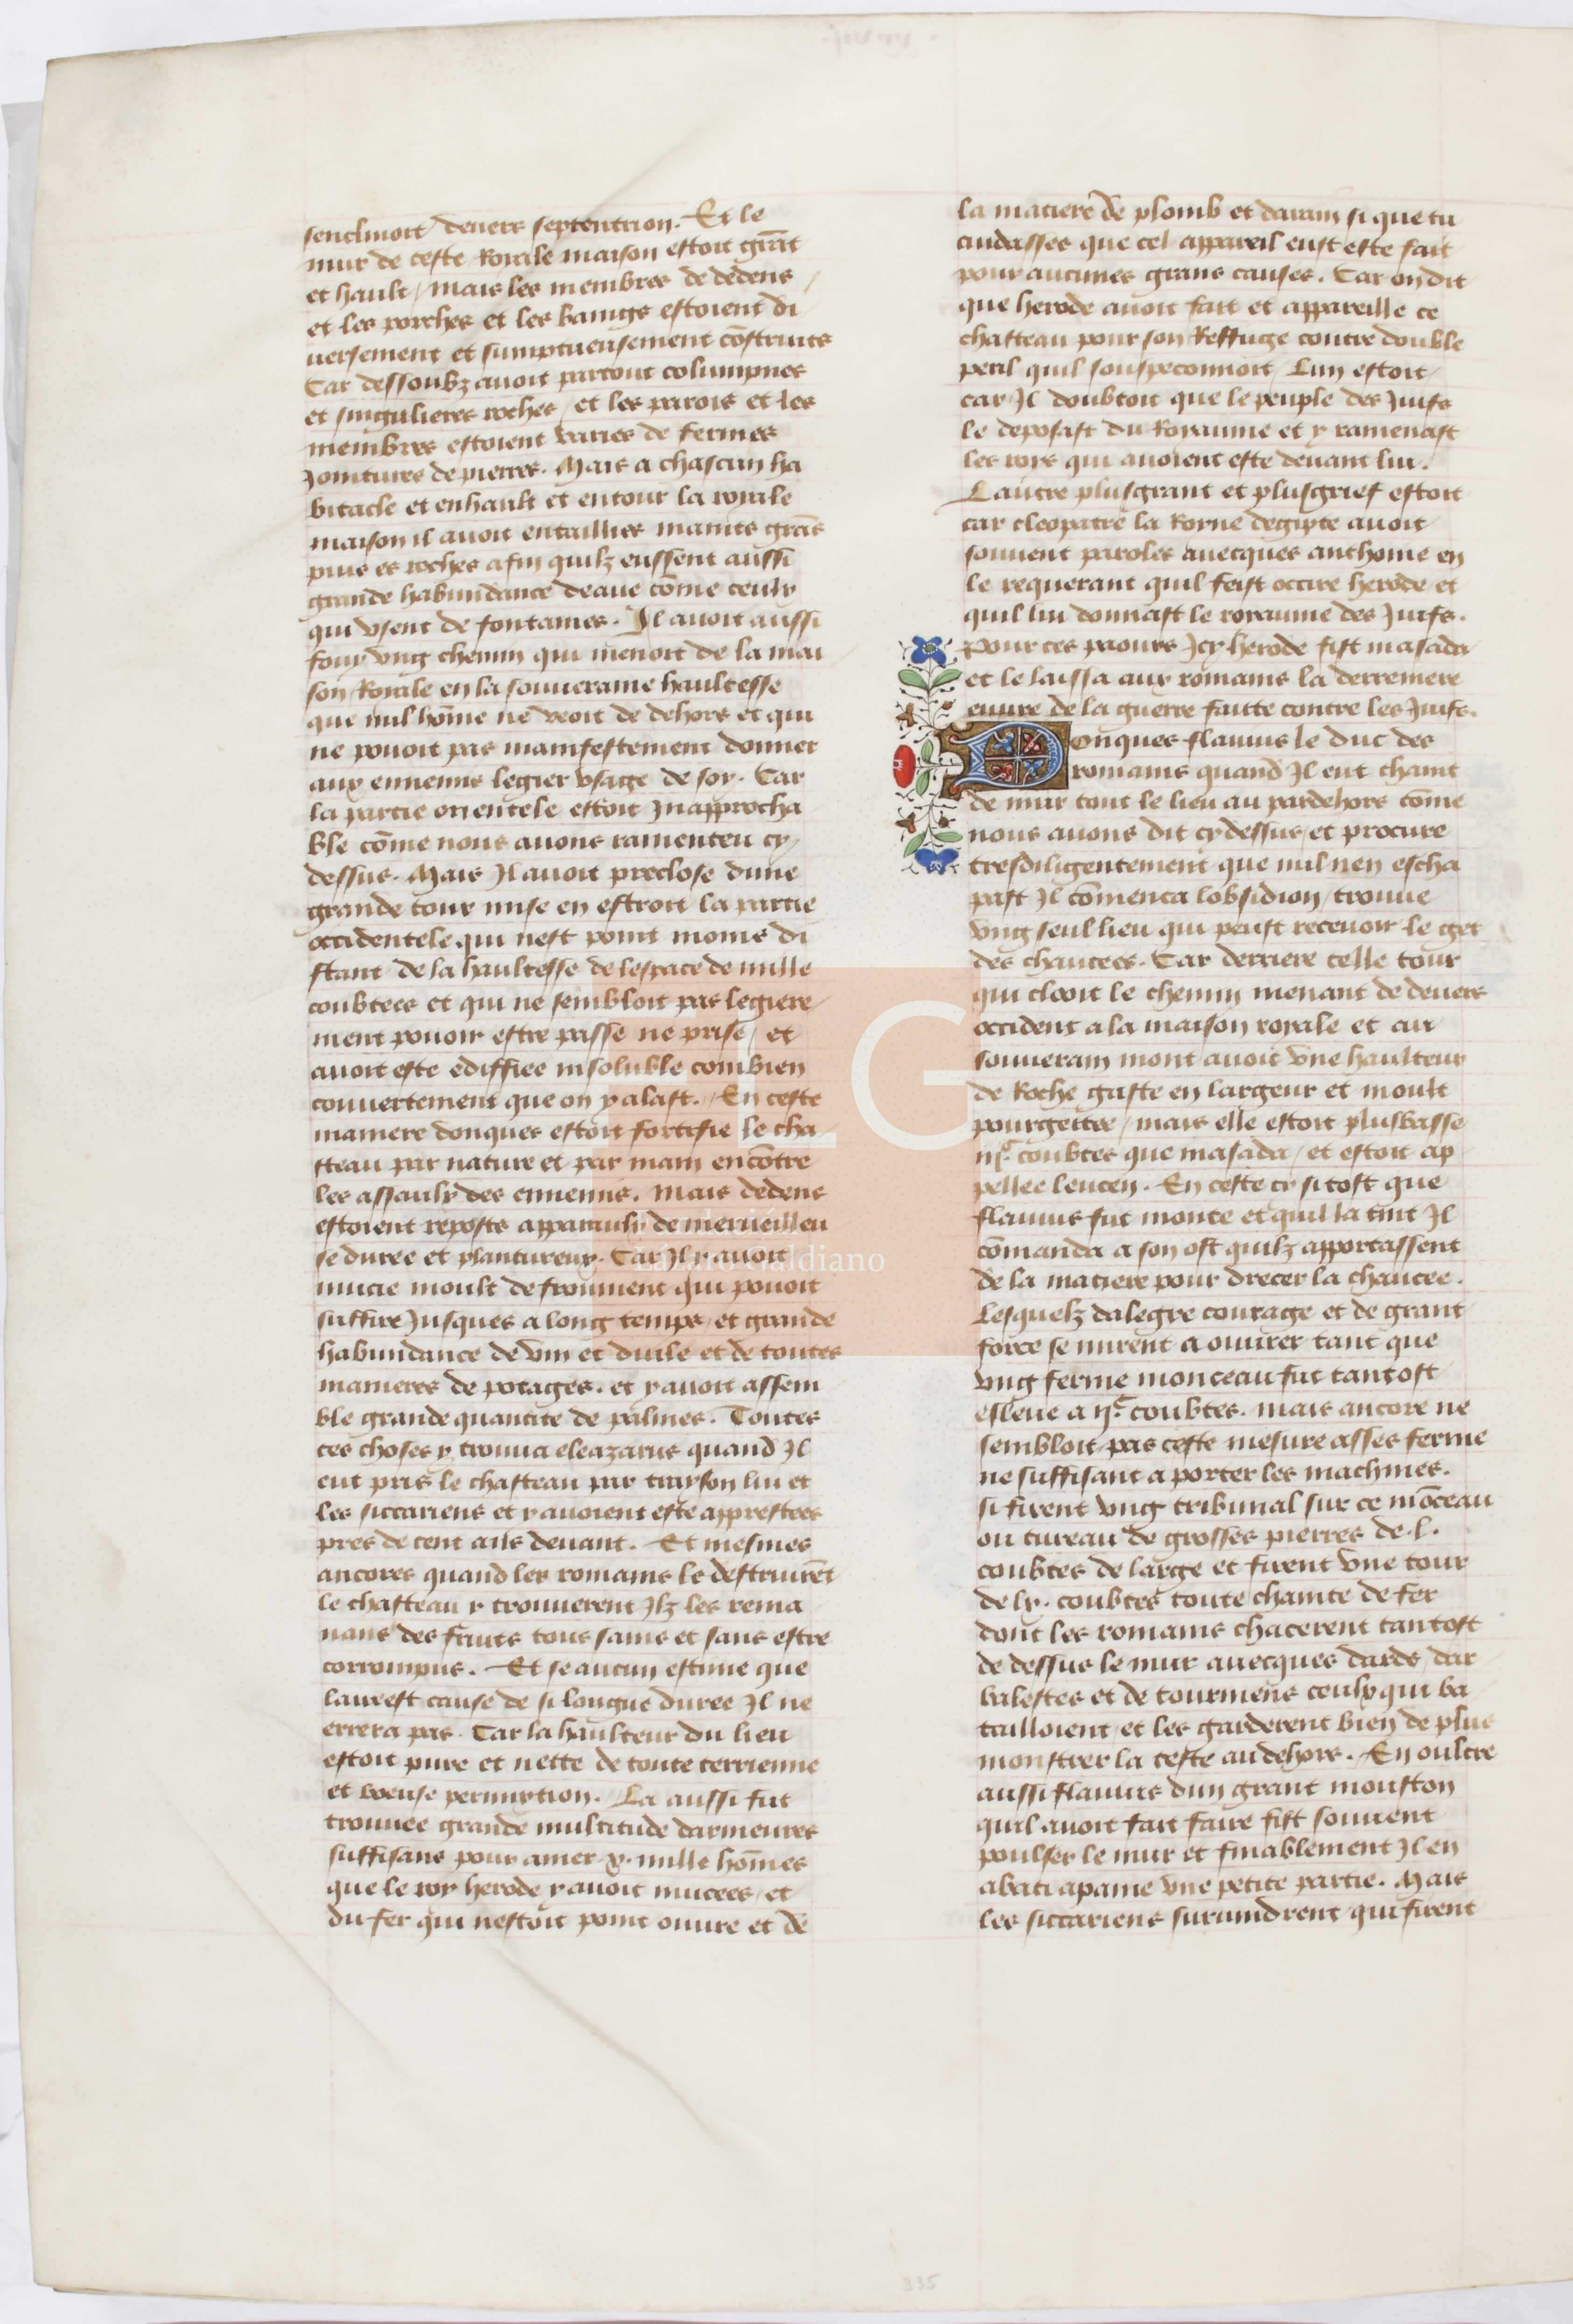 senclinoit deuers septentrion. Et le
mur de ceste Roiale maison estoit grāt
et hault / mais les membres de dedens
et les porches et les baings estoient di
uersement et sumptueusement cōstruits
Car dessoubz auoit partout columpnes
et singulieres roches / et les parois et les
membres estoient varies de fermes
Jointures de pierres. Mais a chascun ha
bitacle et enhault et entour la roiale
maison il auoit entaillies maints grās
puis es roches afin quilz eussent aussi
grande habundance deaue cōme ceulx
qui vsent de fontaines. Il auoit aussi
fouy vng chemin qui menoit de la mai
son Roiale en la souueraine haultesse
que nul hōme ne veoit de dehors et qui
ne pouoit pas manifestement donner
aux ennemis legier vsage de soy. Car
la partie orientele estoit Inapprocha
ble cōme nous auons ramenteu cy
dessus. Mais Il auoit preclose dune
grande tour mise en estroit la partie
occidentele qui nest point moins di
stant de la haultesse de lespace de mille
coubtees et qui ne sembloit pas legiere
ment pouoir estre passe ne prise / et
auoit este ediffiee insoluble combien
couuertement que on y alast. En ceste
maniere donques estoit fortifie le cha
steau par nature et par main encōtre
les assaulx des ennemis. Mais dedens
estoient reposts apparaulx de merueilleu
se duree et plantureux. Car Il y auoit
mucie moult de froument qui pouoit
suffire Jusques a long temps et grande
habundance de vin et duile et de toutes
manieres de potages. et y auoit assem
ble grande quantite de palmes. Toutes
ces choses y trouua eleazarus quand Il
eut pris le chasteau par trayson lui et
les siccariens et y auoient este apprestees
pres de cent ans deuant. Et mesmes
ancores quand les romains le destruirēt
le chasteau y trouuerent Ilz les rema
nans des fruits tous sains et sans estre
corrompus. Et se aucun estime que
laurest cause de si longue duree Il ne
errera pas. Car la haulteur du lieu
estoit pure et nette de toute terrienne
et boeuse permixtion. La aussi fut
trouuee grande multitude darmeures
suffisans pour armer .x. mille hōmes
que le roy herode y auoit mucees / et
du fer qui nestoit point ouure et de
la matiere de plomb et darain si que tu
cuidasses que cel appareil eust este fait
pour aucunes grans causes. Car on dit
que herode auoit fait et appareille ce
chasteau pour son Reffuge contre double
peril quil souspeconnoit Lun estoit
car Il doubtoit que le peuple des Juifs
le deposast du Royaume et y ramenast
les roys qui auoient este deuant lui.
Lautre plusgrant et plusgrief estoit
car cleopatre la Royne degipte auoit
souuent paroles auecques anthoine en
le requerant quil feist occire herode et
quil lui donnast le royaume des Juifs.
Pour ces paours Jcy herode fist masada
et le laissa aux romains la derreniere
euure de la guerre faitte contre les Juifs.
Donques flauius le duc des
romains quand Il eut chaint
de mur tout le lieu au pardehors cōme
nous auons dit cy dessus / et procure
tresdiligentement que nul nen escha
past Il cōmenca lobsidion / trouue
vng seul lieu qui peust receuoir le get
des chaucees. Car derriere celle tour
qui clooit le chemin menant de deuers
occident a la maison royale et au
souuerain mont auoit vne haulteur
de Roche gaste en largeur et moult
pourgettee / mais elle estoit plusbasse
iijc coubtes que masada / et estoit ap
pellee leucen. En ceste cy si tost que
flauius fut monte et quil la tint Il
cōmanda a son ost quilz apportassent
de la matiere pour drecer la chaucee.
Lesquelz dalegre courage et de grant
force se mirent a ouurer tant que
vng ferme monceau fut tantost
esleue a ijc coubtes. mais ancore ne
sembloit pas ceste mesure asses ferme
ne suffisant a porter les machines.
si firent vng tribunal sur ce mōceau
ou tureau de grosses pierres de .l.
coubtes de large et firent vne tour
de lx. coubtes toute chainte de fer
dont les romains chacerent tantost
de dessus le mur auecques dards / dar
balestes et de tourmens ceulx qui ba
tailloient / et les garderent bien de plus
monstrer la teste au dehors. En oultre
aussi flauius dun grant mouston
quil auoit fait faire fist souuent
poulser le mur et finablement Il en
abati apaine vne petite partie. Mais
les siccariens suruindrent qui firent
335
FLG
Lázaro Galdiano